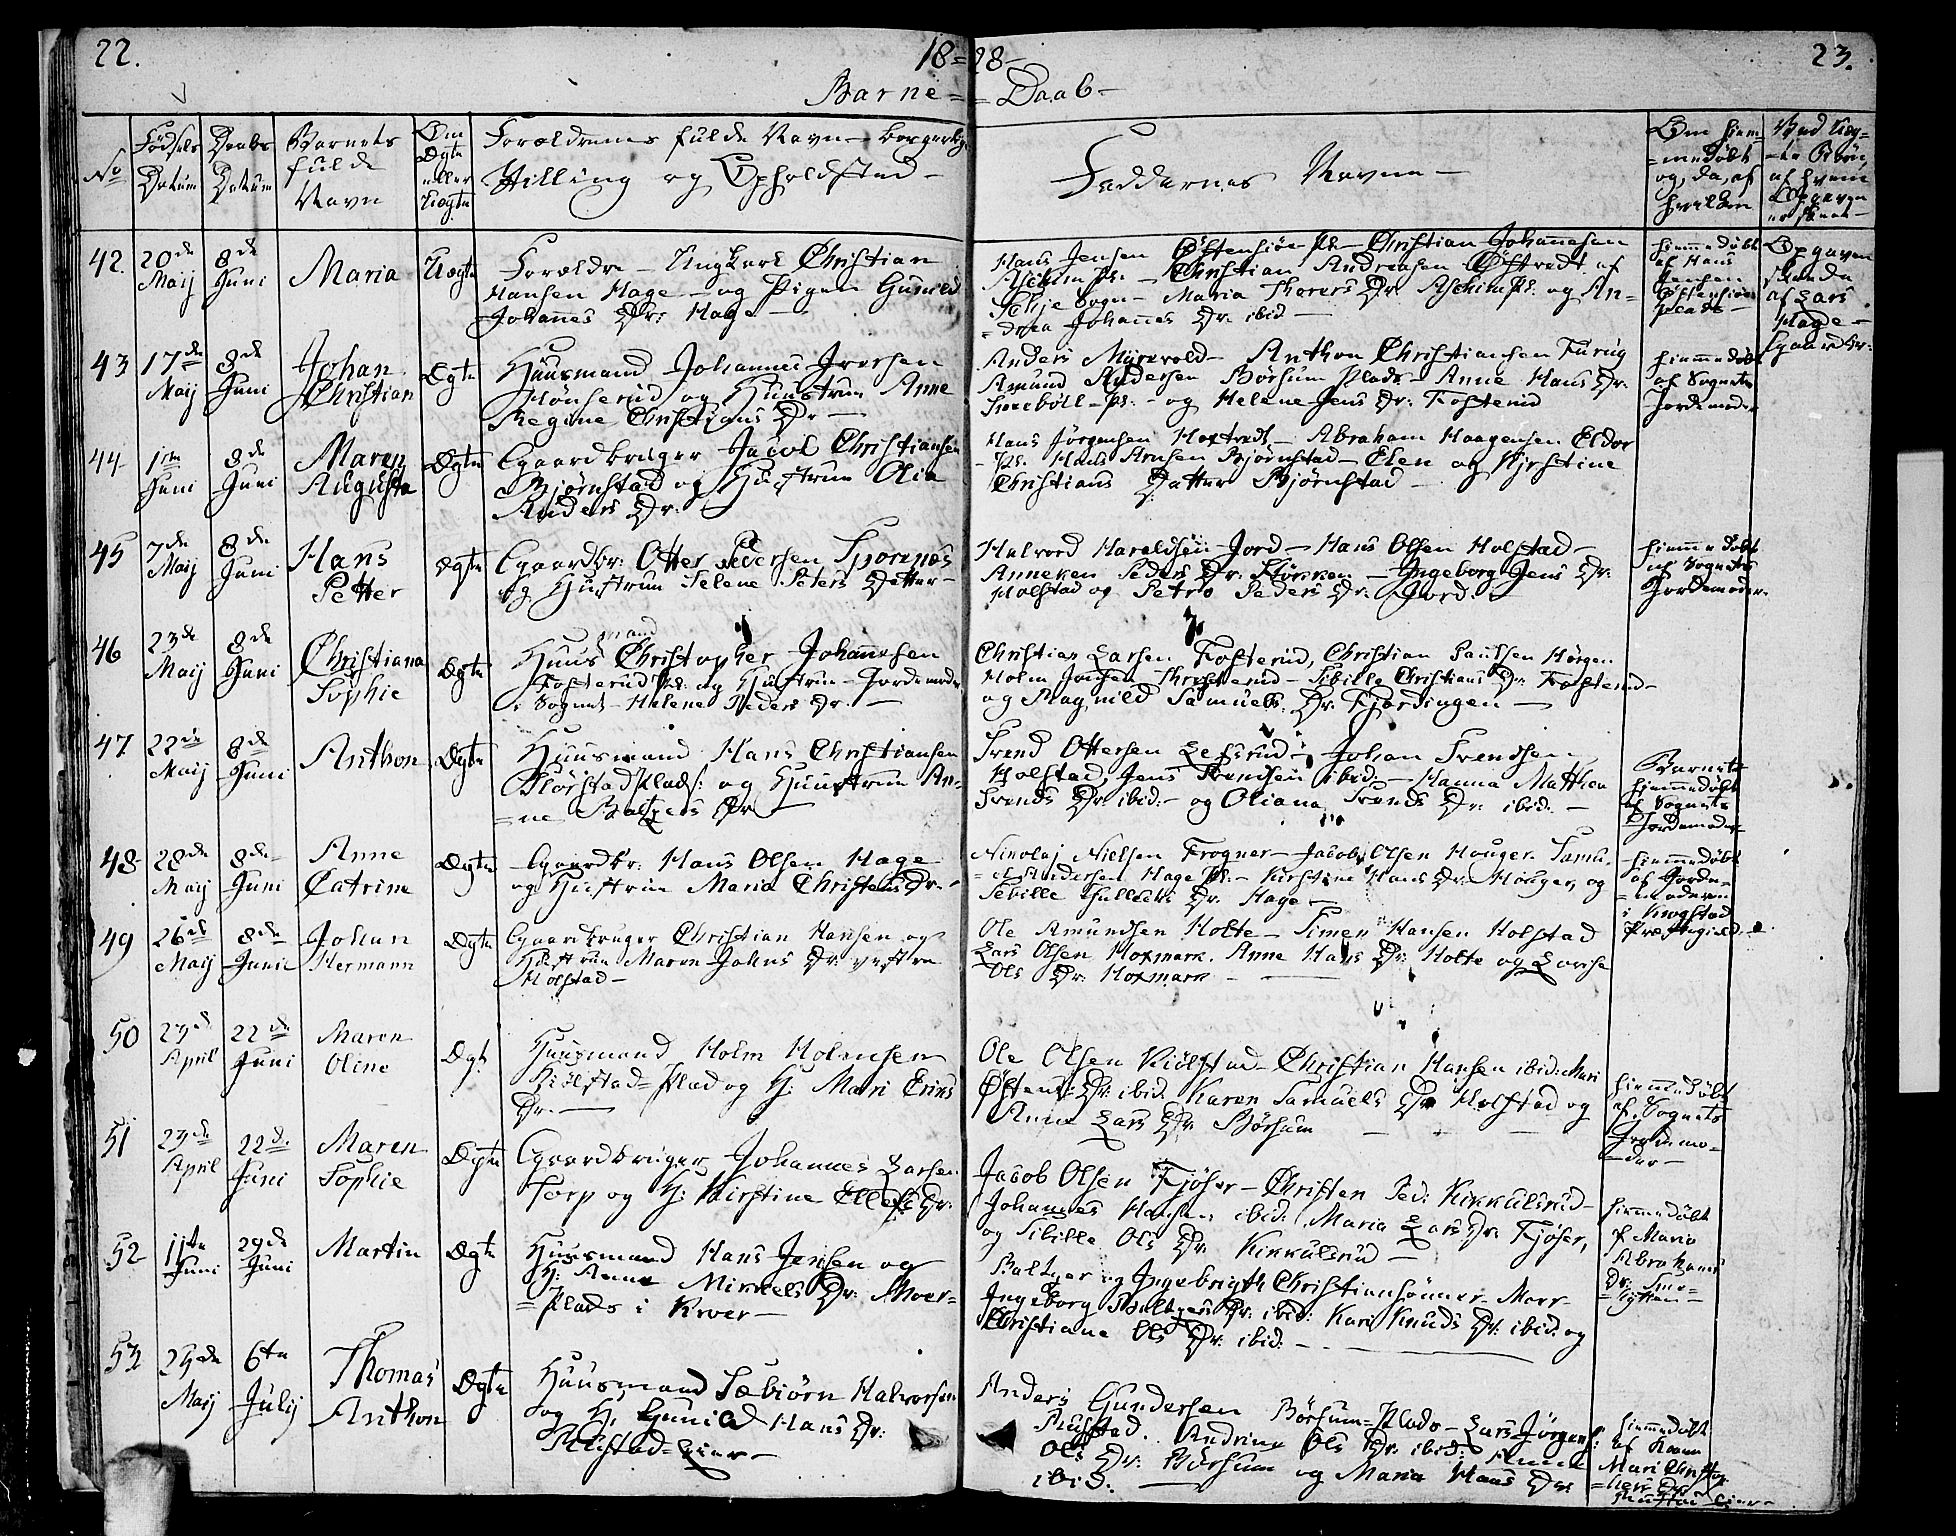 22.
18=28-
23.
Barne= =Daab-
No
Fødsels Datum
Daabs Datum
Barnets fulde Navn
Om Ægte eller Uægte
Forældrenes fulde Navn - borgerlig
Stilling og Opholdsted -
Faddernes Navne -
Om hiem=
=medøbt
og, da, af
hvilken
42. 20de Maij 8de Juni Maria Uægte
Forældre - Ungkarl Christian
Hansen Hage - og Pigen Gunild
Johannes Dr: Hage -
Hans Jensen Østensiøe Ps - Christian Johannesen
Askim Ps. - Christian Andreasen Østredt af
Sogn - Maria Thorers Dr. Askim Ps. og An=
=drea Johannes Dr. ibid -
hiemmedøbt
af Hans
Jensen
Østensiøe
Plads -
Opgaven
skende
af Lars
Hage -
Gaardbr:
43 17de Maij 8de Juni Johan Christian Ægte
Huusmand Johannes Iversen
og Huustrue Anne
Regine Christians Dr -
Anders Myrevold - Anthon Christiansen Furug
Amund Andersen Børsum Plads - Anne Hans Dr.
Ps. - og Helene Jens Dr: Fosterud
hiemmedøbt
af Sognets
Jordemoder
44 1ste Juni 8de Juni Maren Augusta Ægte
Gaardbruger Jacob Christiansen
Bjørnstad og Huustrue Olia
Anders Dr.
Hans Jørgensen - Abraham Haagensen Eldor
- Ps. Hans Arnsen Bjørnstad - Elen og Kjerstine
Christians Datter Bjørnstad -
45 7de Maij 8de Juni Hans Petter Ægte
Gaardbr: Otter Pedersen Spornæs
og Hustrue Selene Peters Datter -
Halvord Haraldsen Jord - Hans Olsen Holstad -
Anneken Peders Dr: - Ingeborg Jens Dr:
Holstad og Petro Peders Dr: Jord. -
hiemmedøbt
af Sognets
Jordemoder.
46 23de Maij 8de Juni Christiana Sophie Ægte
Huusmand Christopher Johannesen
Fosterud Ps. og Huustrue - Jordemoder
i Sognet - Helene Peders Dr. -
Christian Larsen Fosterud, Christian Paulsen Hørgen
Holm Jonsen - Sibille Christians Dr. Fosterud -
og Ragnild Samuels Dr. Fjerdingen -
47 22de Maij 8de Juni Anthon Ægte
Huusmand Hans Christiansen
Plads: og Huustrue An=
=ne Baltzers Dr
Svend Ottersen - Johan Svendsen
Holstad, Jens Svendsen ibid: - Hanna Mathea
Svends Dr ibid: - og Oliana Svends Dr: ibid: -
Barnet
hiemmedøbt
af Sognets
Jordemoder -
48 28de Maij 8de Juni Anne Catrine Ægte
Gaardbr: Hans Olsen Hage
og Hustrue Maria Christens Dr. -
Nikolaj Nielsen Frogner - Jacob Olsen Houger. Samu=
=el Andersen Hage Ps. - Kirstine Hans Dr: Houger, og
Sebille Gulleks Dr. Hage -
hiemmedøbt
af Jorde=
=moderen
i Krogstad
Præstegield -
49 26de Maij 8de Juni Johan Hermann Ægte
Gaardbruger Christian Hansen og
Hustrue Maren Johns Dr. vestre
Holstad -
Ole Amundsen Holte - Simen Hansen Holstad
Lars Olsen Hoxmark. Anne Hans Dr: Holte og Lovise
Ols Dr: Hoxmark -
50 27de April 22de Juni Maren Oline Ægt
Huusmand Holm Holmsen
Kiølstad=Plad og H: Mari Eriks
Dr. -
Ole Olsen Kiølstad - Christian Hansen ibid: Mari
Østens Dr: ibid. Karen Samuels Dr Holstad og
Anne Lars Dr Børsum
hiemmedøbt
af Sognets
Jordemo=
=der -
51 23de April 22de Juni Maren Sophie Ægte
Gaardbruger Johannes Larsen
Torp og H: Kirstine Ellefs Dr:
Jacob Olsen Fjøser - Christen Ped: Kinkulsrud -
Johannes Hansen ibid: Maria Lars Dr: Fjøser,
og Sibille Ols Dr. Kinkulsrud -
hiemmedøbt
af Maria
Abrahams
Dr:
52 11te Juni 29de Juni Martin Ægte
Huusmand Hans Jensen og
H: Anne Mikkels Dr. Moer=
=Plads i Kroer -
Baltzer og Ingebrigth Christiansønner Moer -
Ingeborg Baltzers Dr: ibid: Kari Knuds Dr. ibid: og
Christiane Ols Dr: ibid: -
53 25de Maij 6te Julij Thomas Anthon Ægte
Huusmand Sæbiørn Halvorsen
og H. Gunild Hans Dr:
Rustad=Eier -
Anders Gundersen Børsum=Plads - Lars Jørgens:
Rustad. Andrine Ols Dr. ibid: Anne
Ols Dr: Børsum og Maria Hans Dr:
ibid. -
hiemmedøbt
af Konen
Mari Christop=
=hers Dr
Rustad Eier -